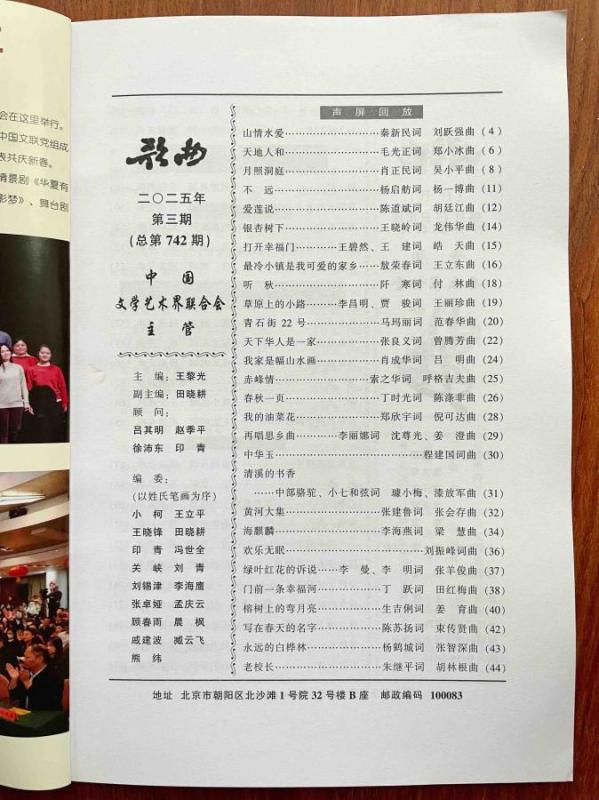 会在这里举行。
中国文联党组成
表共庆新春。
情景剧《华夏有
影梦》、舞台剧
歌曲
二〇二五年
第三期
(总第 742 期)
中国
文学艺术界联合会
主管
主 编：王黎光
副主编：田晓耕
顾 问：
吕其明 赵季平
徐沛东 印 青
编 委：
(以姓氏笔画为序)
小 柯 王立平
王晓锋 田晓耕
印 青 冯世全
关 峡 刘 青
刘锡津 李海鹰
张卓娅 孟庆云
顾春雨 晨 枫
戚建波 臧云飞
熊 纬
声屏回放
山情水爱……………………秦新民词 刘跃强曲 (4)
天地人和……………………毛光正词 郑小冰曲 (6)
月照洞庭……………………肖正民词 吴小平曲 (8)
不 远……………………杨启舫词 杨一博曲 (11)
爱莲说……………………陈道斌词 胡廷江曲 (12)
银杏树下……………………王晓岭词 龙伟华曲 (14)
打开幸福门……………王碧然、王 建词 皓 天曲 (15)
最冷小镇是我可爱的家乡……敖荣春词 王立东曲 (16)
听 秋……………………阡 寒词 付 林曲 (18)
草原上的小路………李昌明、贾 骏词 王丽珍曲 (19)
青石街 22 号………………马玛丽词 范春华曲 (20)
天下华人是一家……………张良义词 曾腾芳曲 (22)
我家是幅山水画……………肖成华词 吕 明曲 (24)
赤峰情……………………索之华词 呼格吉夫曲 (25)
春秋一页……………………丁时光词 陈涤非曲 (26)
我的油菜花…………………郑欣宇词 倪可达曲 (28)
再唱思乡曲………李丽娜词 沈尊光、姜 澄曲 (29)
中华玉……………………………程建国词曲 (30)
清溪的书香
……中部骆驼、小七和弦词 璩小梅、漆放军曲 (31)
黄河大集……………………张建鲁词 张会存曲 (32)
海麒麟……………………李海燕词 梁 慧曲 (34)
欢乐无眠…………………………刘振峰词曲 (36)
绿叶红花的诉说……李 曼、李 明词 张羊俊曲 (37)
门前一条幸福河……………丁 跃词 田红梅曲 (38)
榕树上的弯月亮……………生吉俐词 姜 育曲 (40)
写在春天的名字……………陈苏扬词 束传贤曲 (42)
永远的白桦林………………杨鹤城词 张智深曲 (43)
老校长……………………朱继平词 胡林根曲 (44)
地址 北京市朝阳区北沙滩 1 号院 32 号楼 B 座 邮政编码 100083